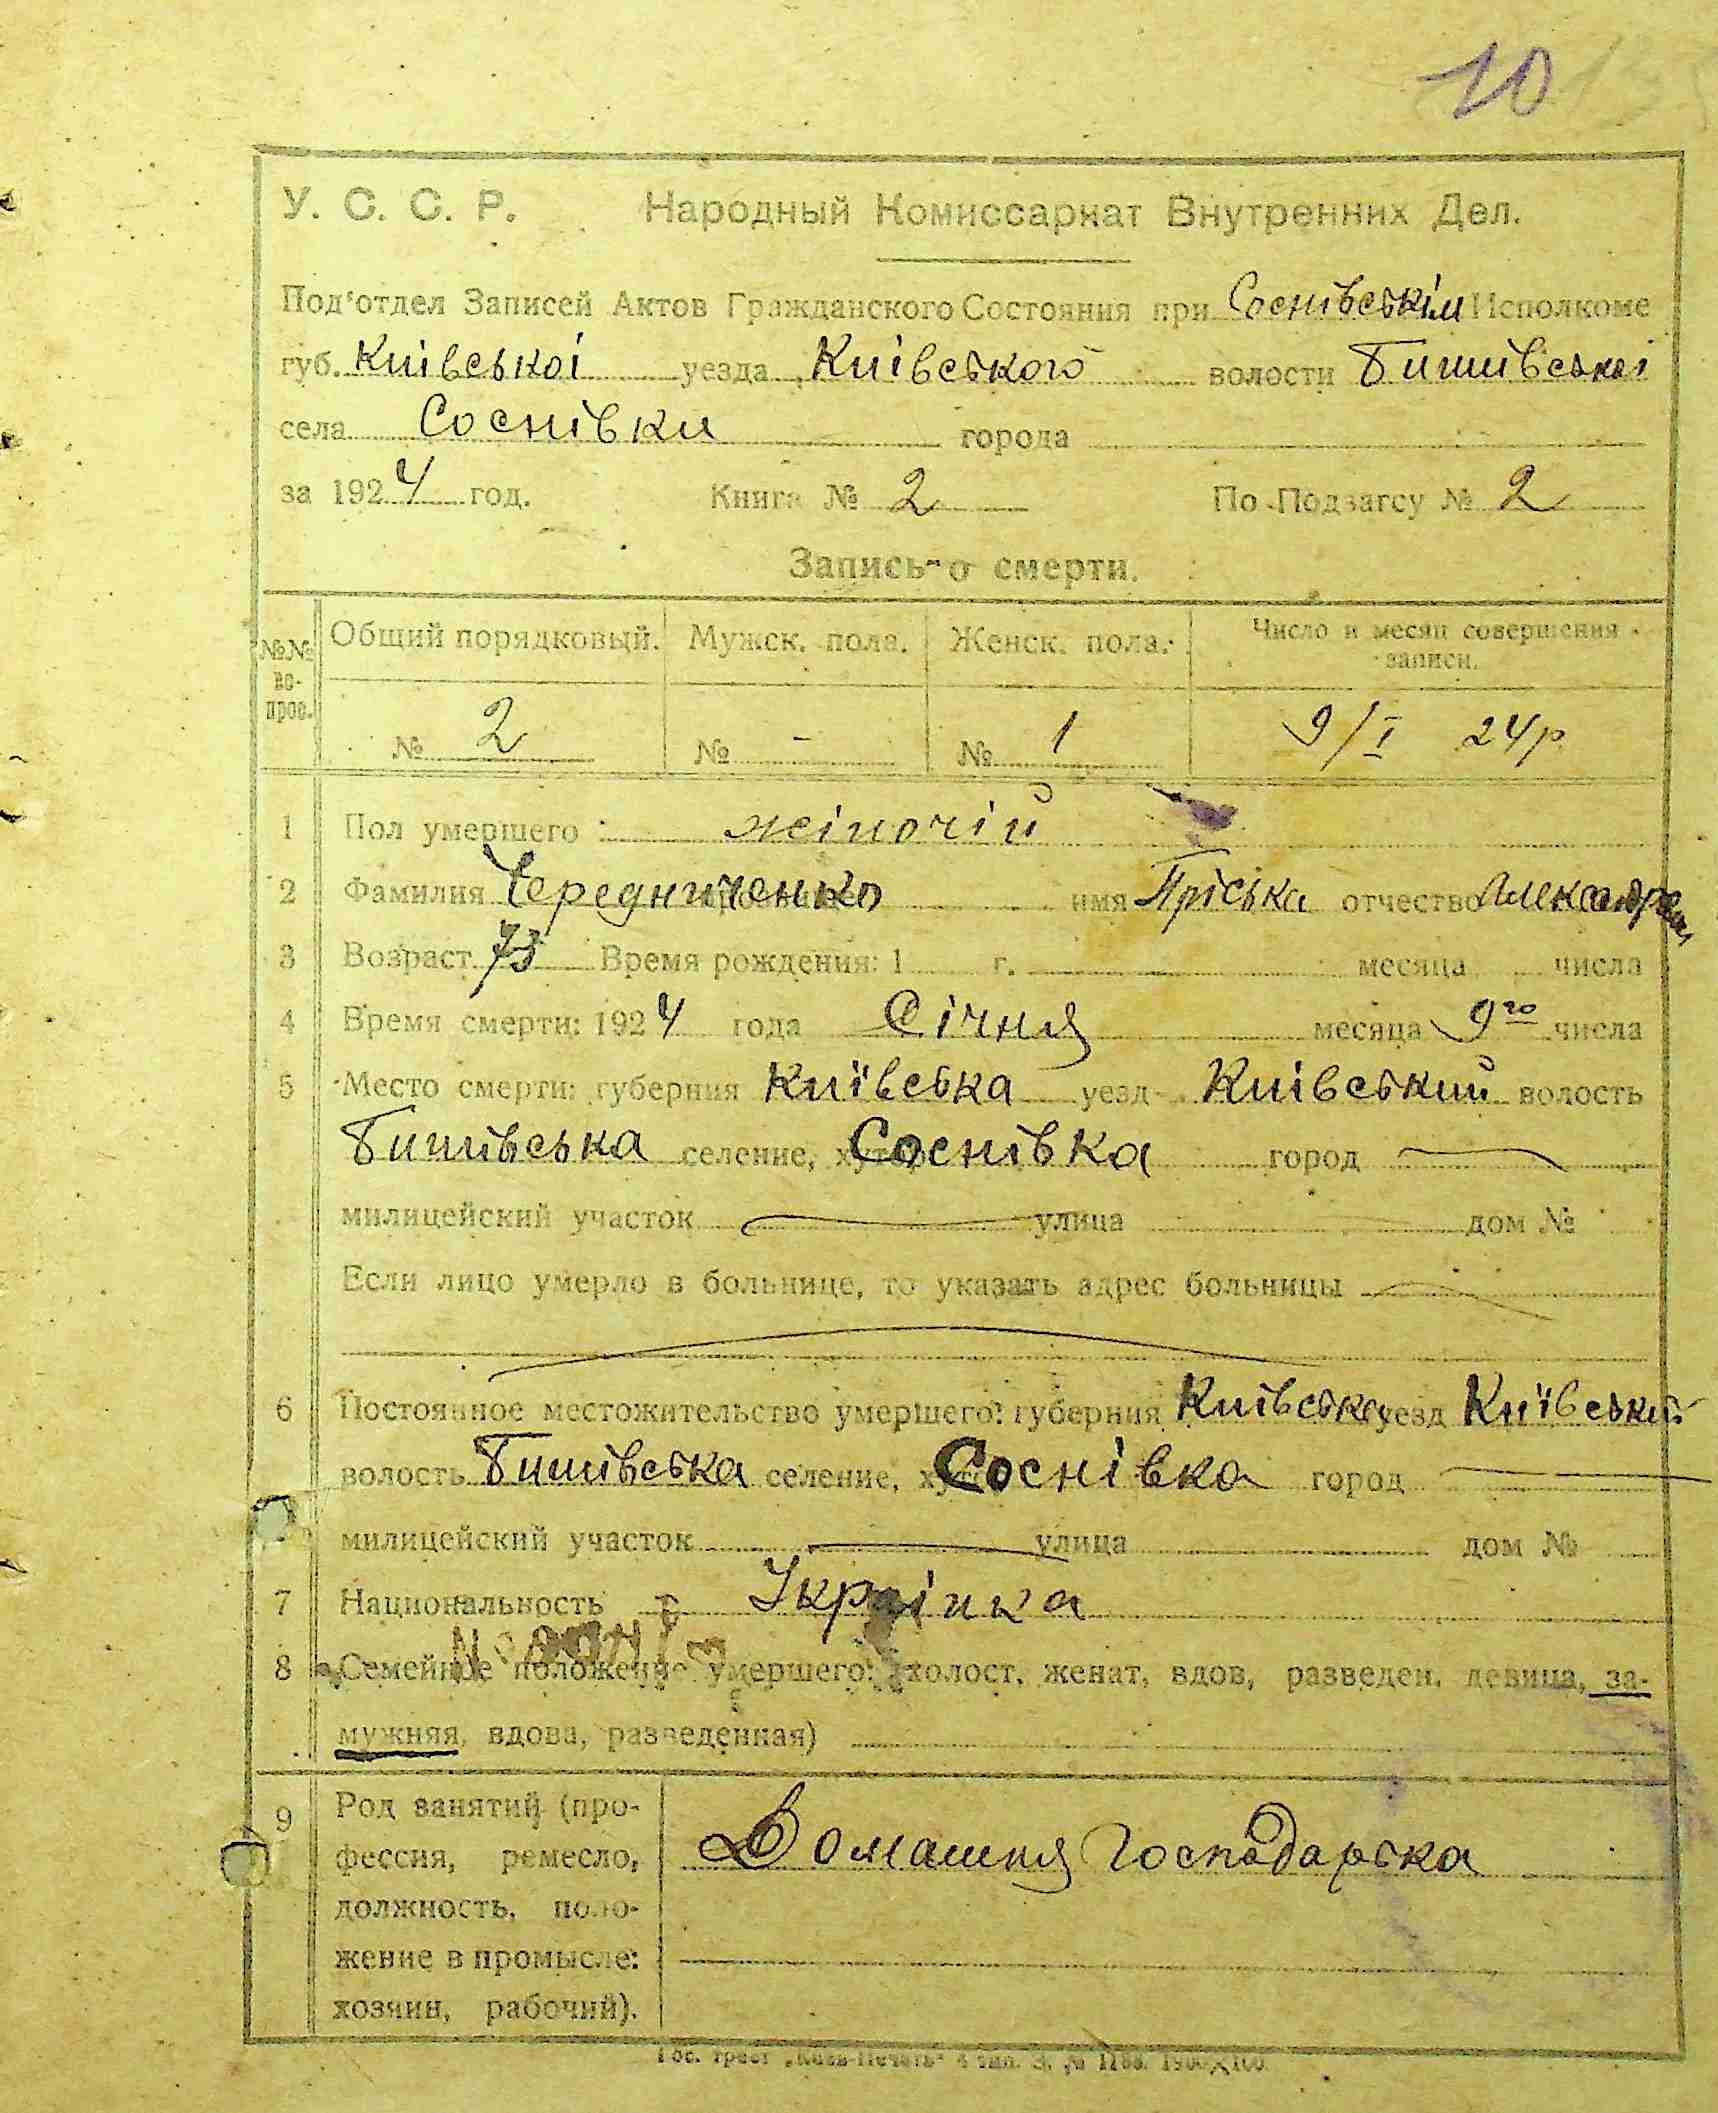 10
У. С. С. Р. Народный Комиссариат Внутренних Дел.
Под'отдел Записей Актов Гражданского Состояния при Соснівськім Исполкоме
губ. Київської уезда Київського волости Бишівської
села Соснівки города
за 1924 год. Книга № 2 По Подзагсу № 2
Запись о смерти.
№№ вопрос. Общий порядковый. Мужск. пола. Женск. пола. Число и месяц совершения записи.
№ 2 № - № 1 9/I 24р
1 Пол умершего: жіночій
2 Фамилия Чередниченко имя Пріська отчество
3 Возраст 73 Время рождения: 1 г. месяца числа
4 Время смерти: 1924 года Січня месяца 9го числа
5 Место смерти: губерния Київська уезд Київський волость
Бишівська селение, хутор Соснівка город
милицейский участок улица дом №
Если лицо умерло в больнице, то указать адрес больницы
6 Постоянное местожительство умершего: губерния Київська уезд Київський
волость Бишівська селение, хутор Соснівка город
милицейский участок улица дом №
7 Национальность Українка
8 Семейное положение умершего: (холост, женат, вдов, разведен, девица, за-
мужняя, вдова, разведенная)
9 Род занятий (про-
фессия, ремесло,
должность, поло-
жение в промысле:
хозяин, рабочий).
Домашня Господарька